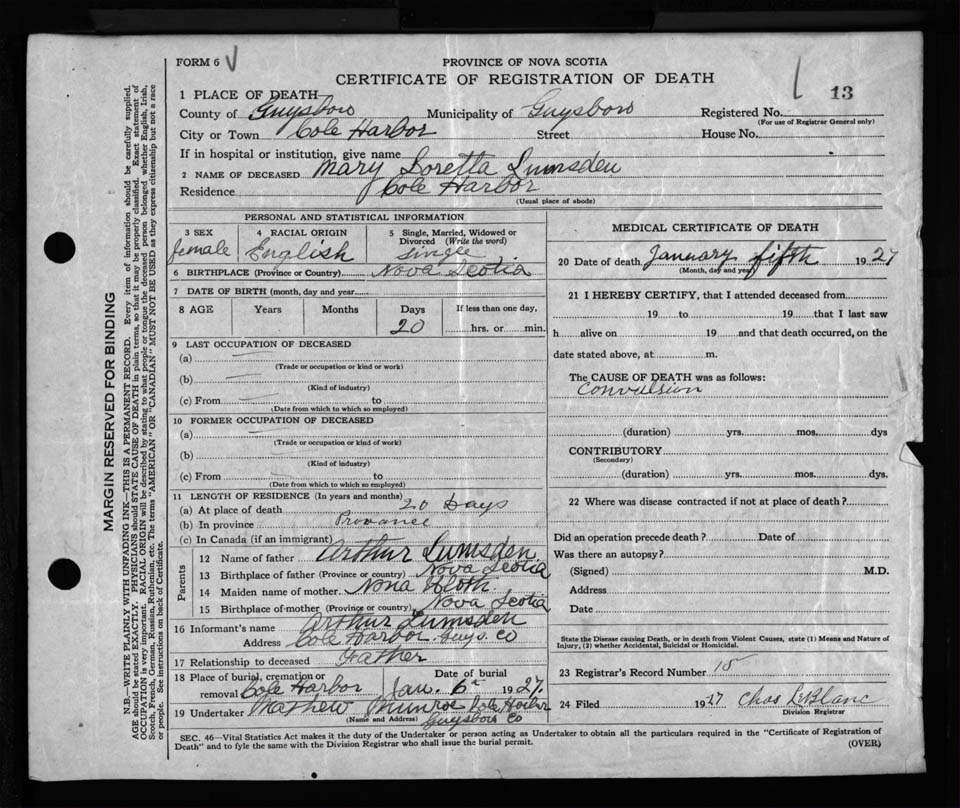 FORM 6
PROVINCE OF NOVA SCOTIA
CERTIFICATE OF REGISTRATION OF DEATH
13
1 PLACE OF DEATH
County of Guysboro Municipality of Guysboro Registered No.
(For use of Registrar General only)
City or Town Cole Harbor Street House No.
If in hospital or institution, give name
2 NAME OF DECEASED Mary Loretta Lumsden
Residence Cole Harbor
(Usual place of abode)
PERSONAL AND STATISTICAL INFORMATION
3 SEX
female
4 RACIAL ORIGIN
English
5 Single, Married, Widowed or Divorced (Write the word)
Single
6 BIRTHPLACE (Province or Country) Nova Scotia
7 DATE OF BIRTH (month, day and year)
8 AGE Years Months Days If less than one day,
20 hrs. or min.
9 LAST OCCUPATION OF DECEASED
(a)
(Trade or occupation or kind or work)
(b)
(Kind of industry)
(c) From to
(Date from which to which so employed)
10 FORMER OCCUPATION OF DECEASED
(a)
(Trade or occupation or kind of work)
(b)
(Kind of industry)
(c) From to
(Date from which to which so employed)
11 LENGTH OF RESIDENCE (In years and months)
(a) At place of death 20 Days
(b) In province Provance
(c) In Canada (if an immigrant)
Parents
12 Name of father Arthur Lumsden
13 Birthplace of father (Province or country) Nova Scotia
14 Maiden name of mother Nona
15 Birthplace of mother (Province or country) Nova Scotia
16 Informant's name Arthur Lumsden
Address Cole Harbor Guys. Co
17 Relationship to deceased Father
18 Place of burial, cremation or removal Cole Harbor
Date of burial
Jan. 6th 1927.
19 Undertaker Mathew Munroe Cole Harbor
(Name and Address) Guysboro Co
MEDICAL CERTIFICATE OF DEATH
20 Date of death January fifth 1927
(Month, day and year)
21 I HEREBY CERTIFY, that I attended deceased from
19 to 19 that I last saw
h alive on 19 and that death occurred, on the
date stated above, at m.
The CAUSE OF DEATH was as follows:
Convulsion
(duration) yrs. mos. dys
CONTRIBUTORY
(Secondary)
(duration) yrs. mos. dys.
22 Where was disease contracted if not at place of death?
Did an operation precede death? Date of
Was there an autopsy?
(Signed) M.D.
Address
Date
State the Disease causing Death, or in death from Violent Causes, state (1) Means and Nature of
Injury, (2) whether Accidental, Suicidal or Homicidal.
23 Registrar's Record Number 15
24 Filed 1927 Chas LeBlanc
Division Registrar
SEC. 46—Vital Statistics Act makes it the duty of the Undertaker or person acting as Undertaker to obtain all the particulars required in the "Certificate of Registration of
Death" and to fyle the same with the Division Registrar who shall issue the burial permit. (OVER)
MARGIN RESERVED FOR BINDING
N.B.—WRITE PLAINLY WITH UNFADING INK—THIS IS A PERMANENT RECORD. Every item of information should be carefully supplied.
AGE should be stated EXACTLY. PHYSICIANS should STATE CAUSE OF DEATH in plain terms, so that it may be properly classified. Exact statement of
OCCUPATION is very important. RACIAL ORIGIN will be described by stating to what people or tongue the deceased person belonged whether English, Irish,
Scotch, French, German, Russian, Ruthenian, etc. The terms "AMERICAN" OR "CANADIAN" MUST NOT BE USED as they express citizenship but not a race
or people. See instructions on back of Certificate.